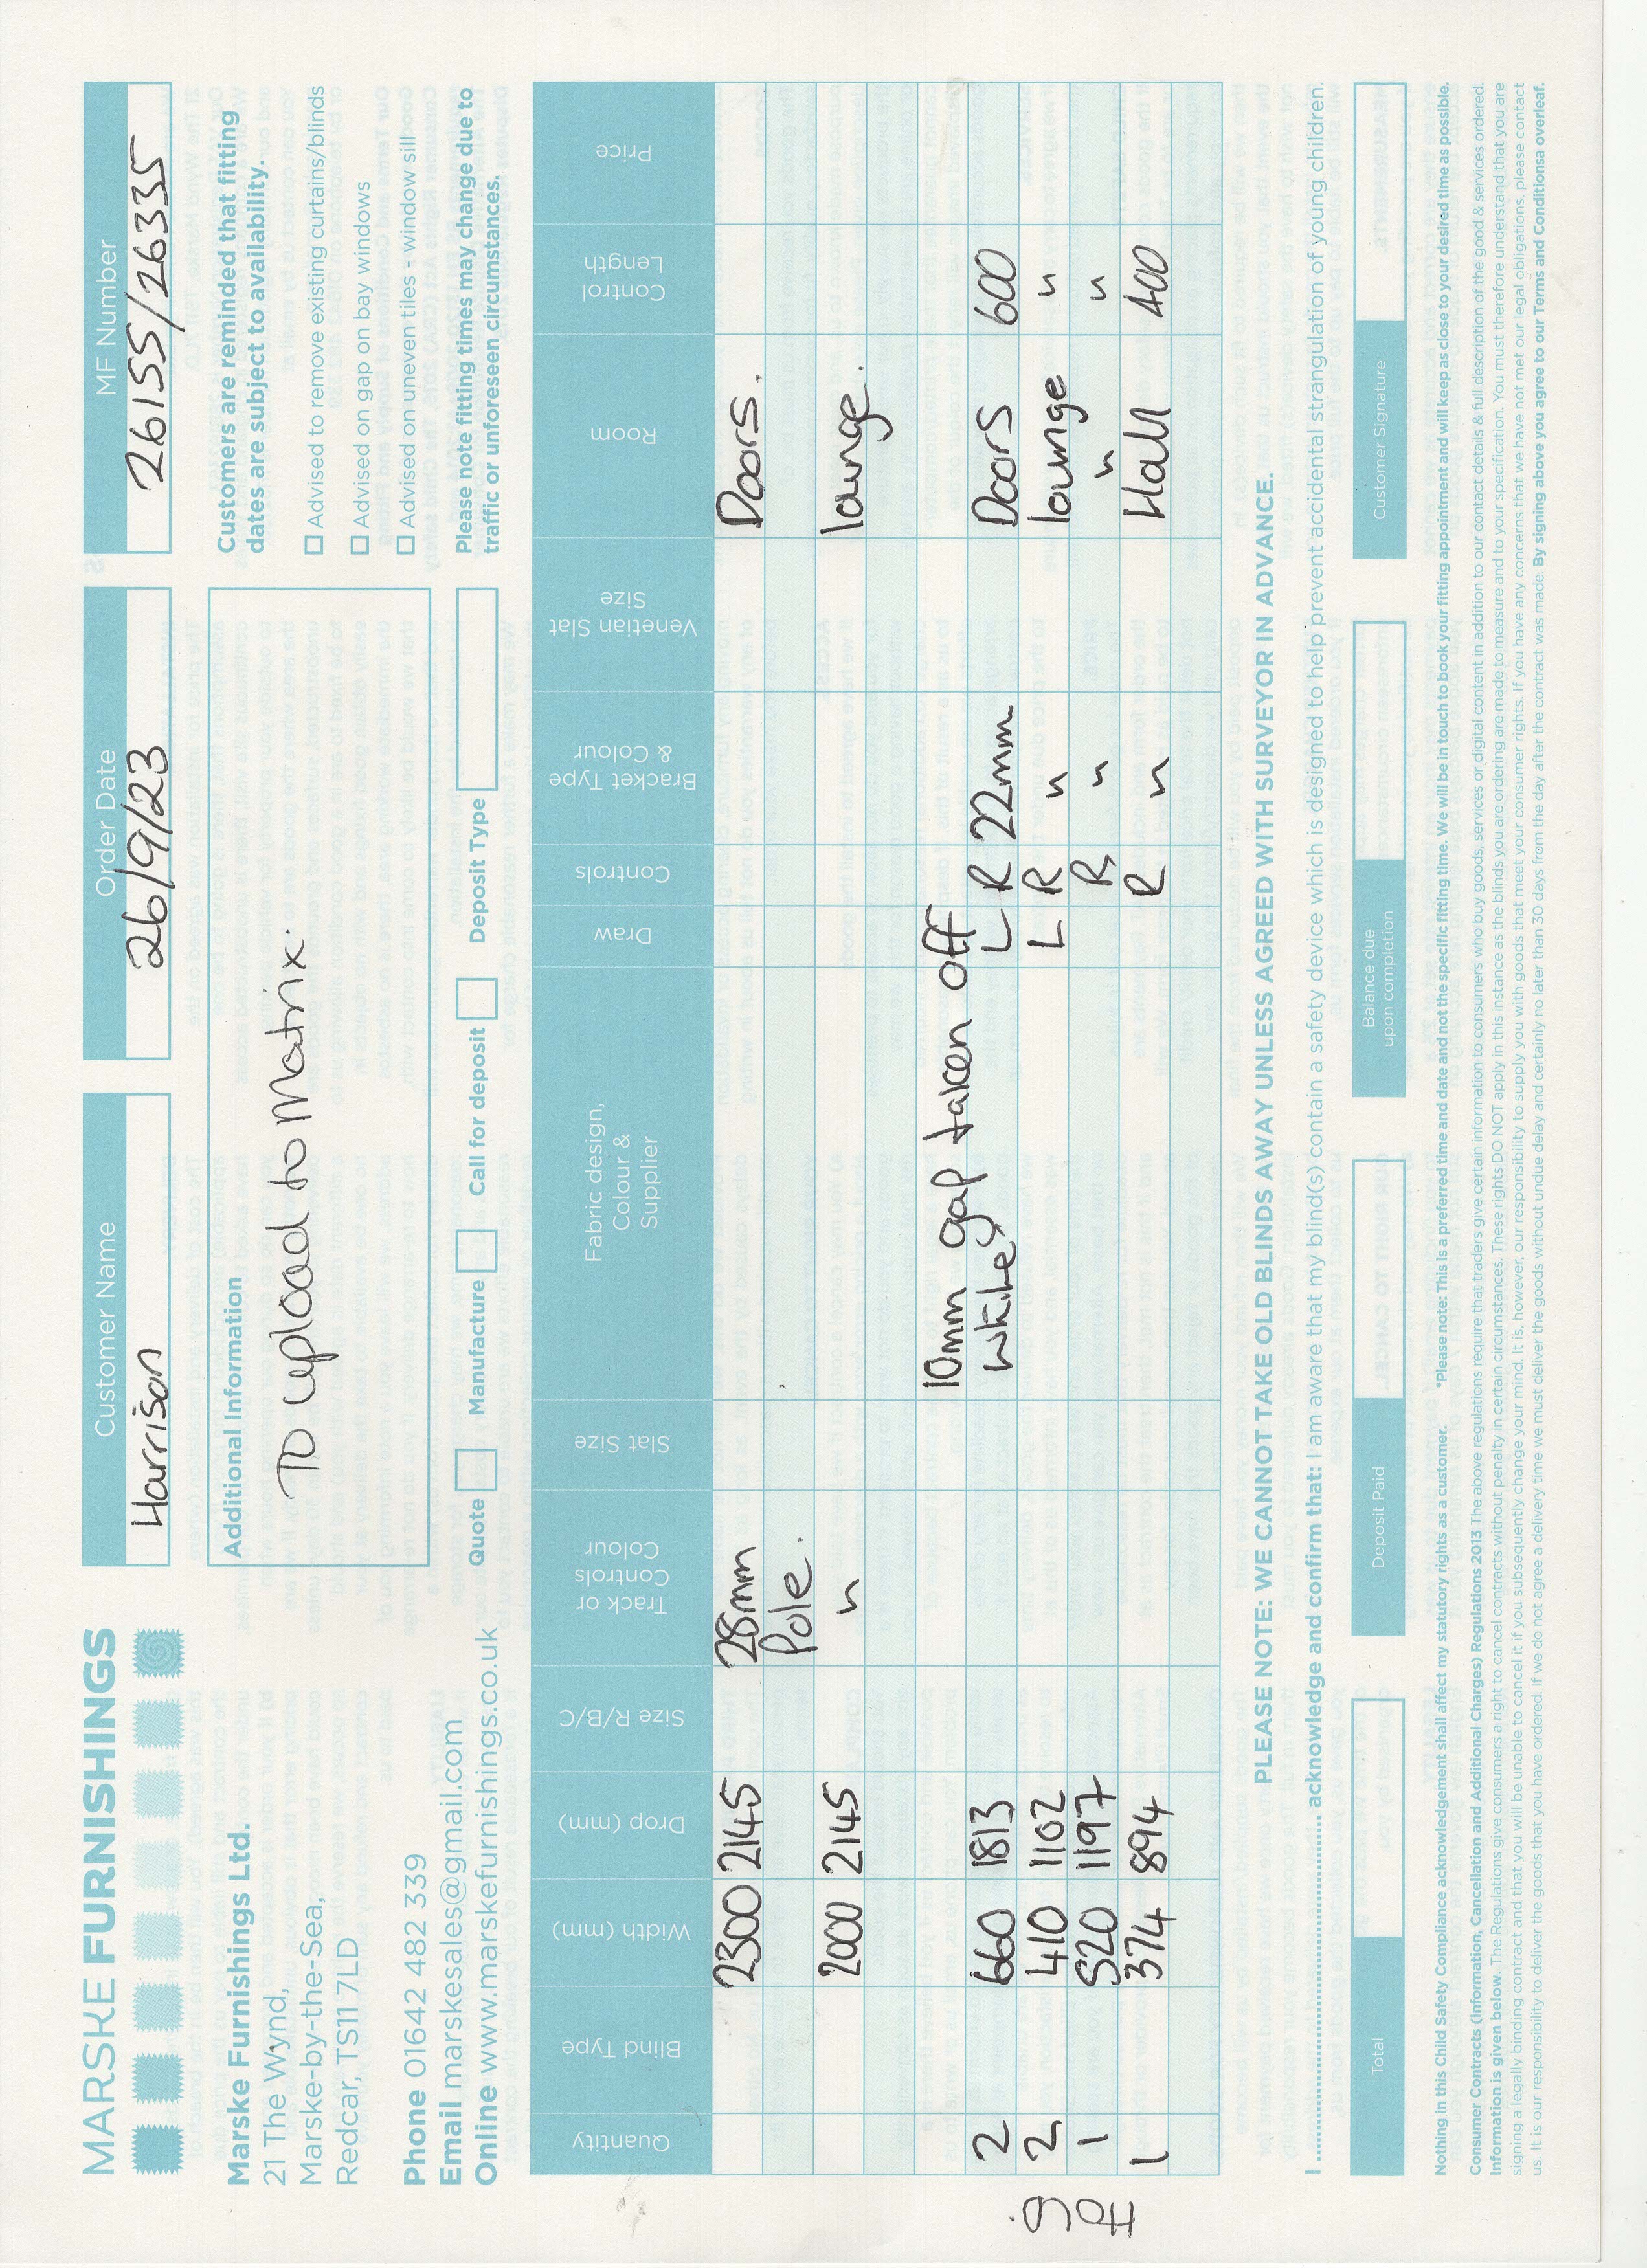 MARSKE FURNISHINGS
Marske Furnishings Ltd.
21 The Wynd,
Marske-by-the-Sea,
Redcar, TS11 7LD
Phone 01642 482 339
Email marskesales@gmail.com
Online www.marskefurnishings.co.uk
Customer Name
Harrison
Order Date
26/9/23
MF Number
26155/26335
Additional Information
To upload to Matrix.
Customers are reminded that fitting
dates are subject to availability.
Advised to remove existing curtains/blinds
Advised on gap on bay windows
Advised on uneven tiles - window sill
Please note fitting times may change due to
traffic or unforeseen circumstances.
Quote Manufacture Call for deposit Deposit Type
Quantity Blind Type Width (mm) Drop (mm) Size R/B/C Track or Controls Colour Slat Size Fabric design, Colour & Supplier Draw Controls Bracket Type & Colour Venetian Slat Size Room Control Length Price
2300 2145 28mm Doors.
Pole.
2000 2145 " lounge.
10mm gap taken off
2 660 1813 White L R 22mm Doors 600
2 410 1102 L R " lounge "
1 520 1197 R " " "
1 374 894 R " Hall 400
PLEASE NOTE: WE CANNOT TAKE OLD BLINDS AWAY UNLESS AGREED WITH SURVEYOR IN ADVANCE.
I .......................................... acknowledge and confirm that: I am aware that my blind(s) contain a safety device which is designed to help prevent accidental strangulation of young children.
Total
Deposit Paid
Balance due
upon completion
Customer Signature
Nothing in this Child Safety Compliance acknowledgement shall affect my statutory rights as a customer. *Please note: This is a preferred time and date and not the specific fitting time. We will be in touch to book your fitting appointment and will keep as close to your desired time as possible.
Consumer Contracts (Information, Cancellation and Additional Charges) Regulations 2013 The above regulations require that traders give certain information to consumers who buy goods, services or digital content in addition to our contact details & full description of the good & services ordered.
Information is given below. The Regulations give consumers a right to cancel contracts without penalty in certain circumstances. These rights DO NOT apply in this instance as the blinds you are ordering are made to measure and to your specification. You must therefore understand that you are
signing a legally binding contract and that you will be unable to cancel it if you subsequently change your mind. It is, however, our responsibility to supply you with goods that meet your consumer rights. If you have any concerns that we have not met our legal obligations, please contact
us. It is our responsibility to deliver the goods that you have ordered. If we do not agree a delivery time we must deliver the goods without undue delay and certainly no later than 30 days from the day after the contract was made. By signing above you agree to our Terms and Conditionsa overleaf.